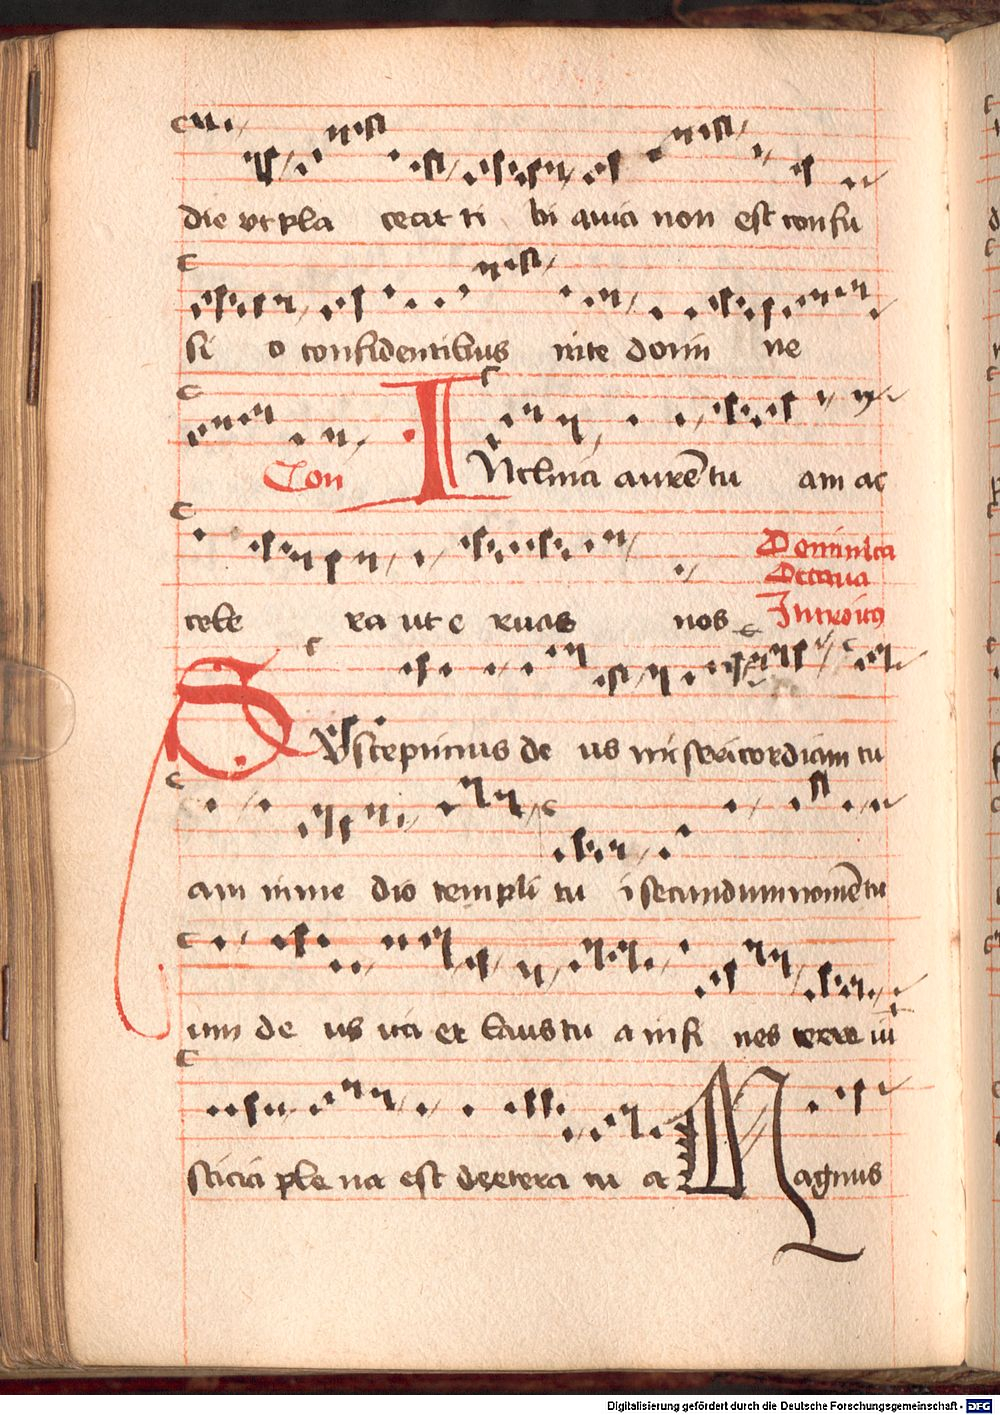 die vt pla ceat ti bi quia non est confu
si o confidentibus in te domi ne
Con INclina aurē tu am ac
Dominica
Octaua
cele ra ut e ruas nos Introitus
SVscepimus de us misericordiam tu
am in me dio templi tu i secundum nomē tu
um de us ita et laus tu a in fi nes terre iu
sticia ple na est dextera tu a Magnus
Digitalisierung gefördert durch die Deutsche Forschungsgemeinschaft - DFG